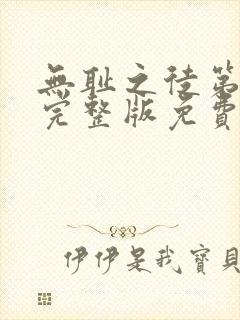 無耻之徒第
完整版免費
伊伊是我寶貝